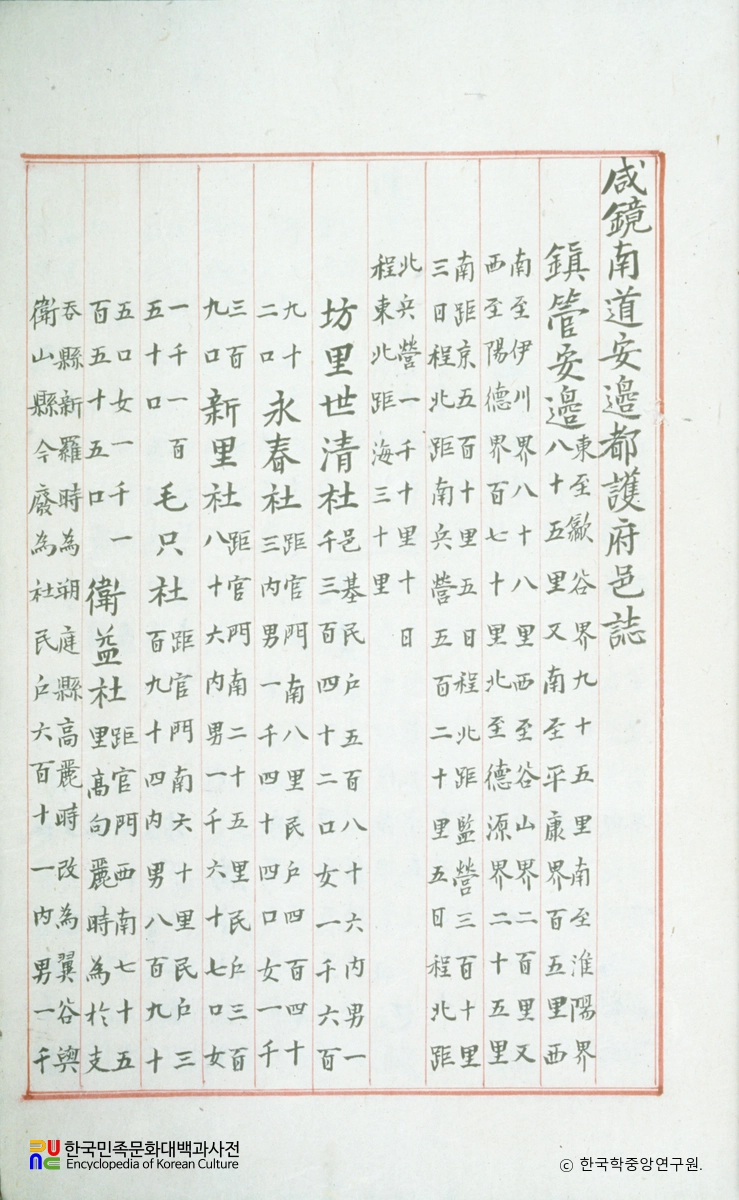 咸鏡南道安邊都護府邑誌
鎭管安邊
東至歙谷界九十五里南至淮陽界
八十五里又南至平康界百五里西
南至伊川界八十八里西至谷山界二百里又
西至陽德界百七十里北至德源界二十五里
南距京五百十里五日程北距監營三百十里
三日程北距南兵營五百二十里五日程北距
北兵營一千十里十日
程東北距海三十里
坊里世清社
邑基民戶五百八十六內男一
千三百四十二口女一千六百
九十
二口
永春社
距官門南八里民戶四百四十
三內男一千四十四口女一千
三百
九口
新里社
距官門南二十五里民戶三百
八十六內男一千六十七口女
一千一百
五十口
毛只社
距官門南六十里民戶三
百九十四內男八百九十
五口女一千一
百五十五口
衛益社
距官門西南七十五
里高句麗時為於支
吞縣新羅時為朔庭縣高麗時改為翼谷與
衛山縣今廢為社民戶六百十一內男一千
한국민족문화대백과사전
Encyclopedia of Korean Culture
© 한국학중앙연구원.